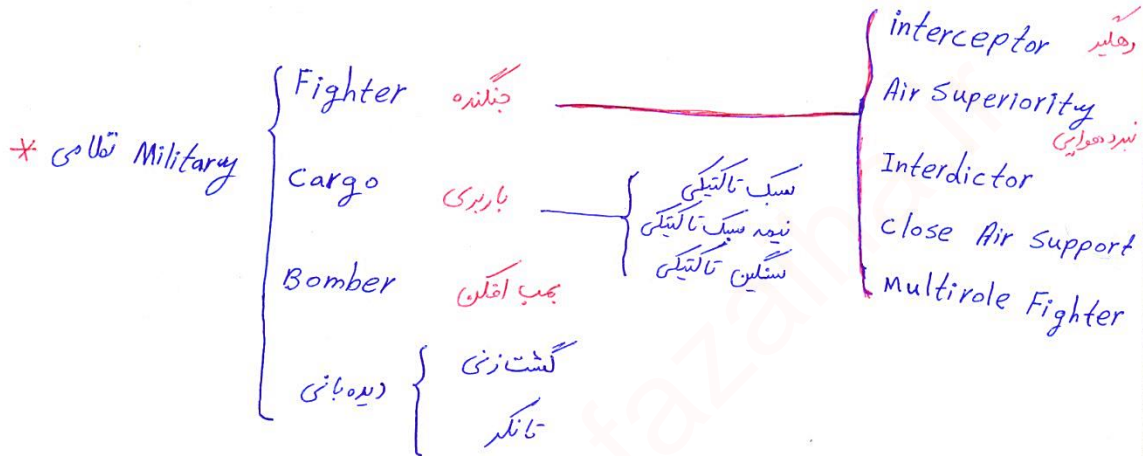 * نظامی Military
Fighter جنگنده
Cargo باربری
Bomber بمب افکن
دیده بانی
سبک تاکتیکی
نیمه سبک تاکتیکی
سنگین تاکتیکی
گشت زنی
تانکر
interceptor رهگیر
Air Superiority
نبرد هوایی
Interdictor
Close Air Support
Multirole Fighter